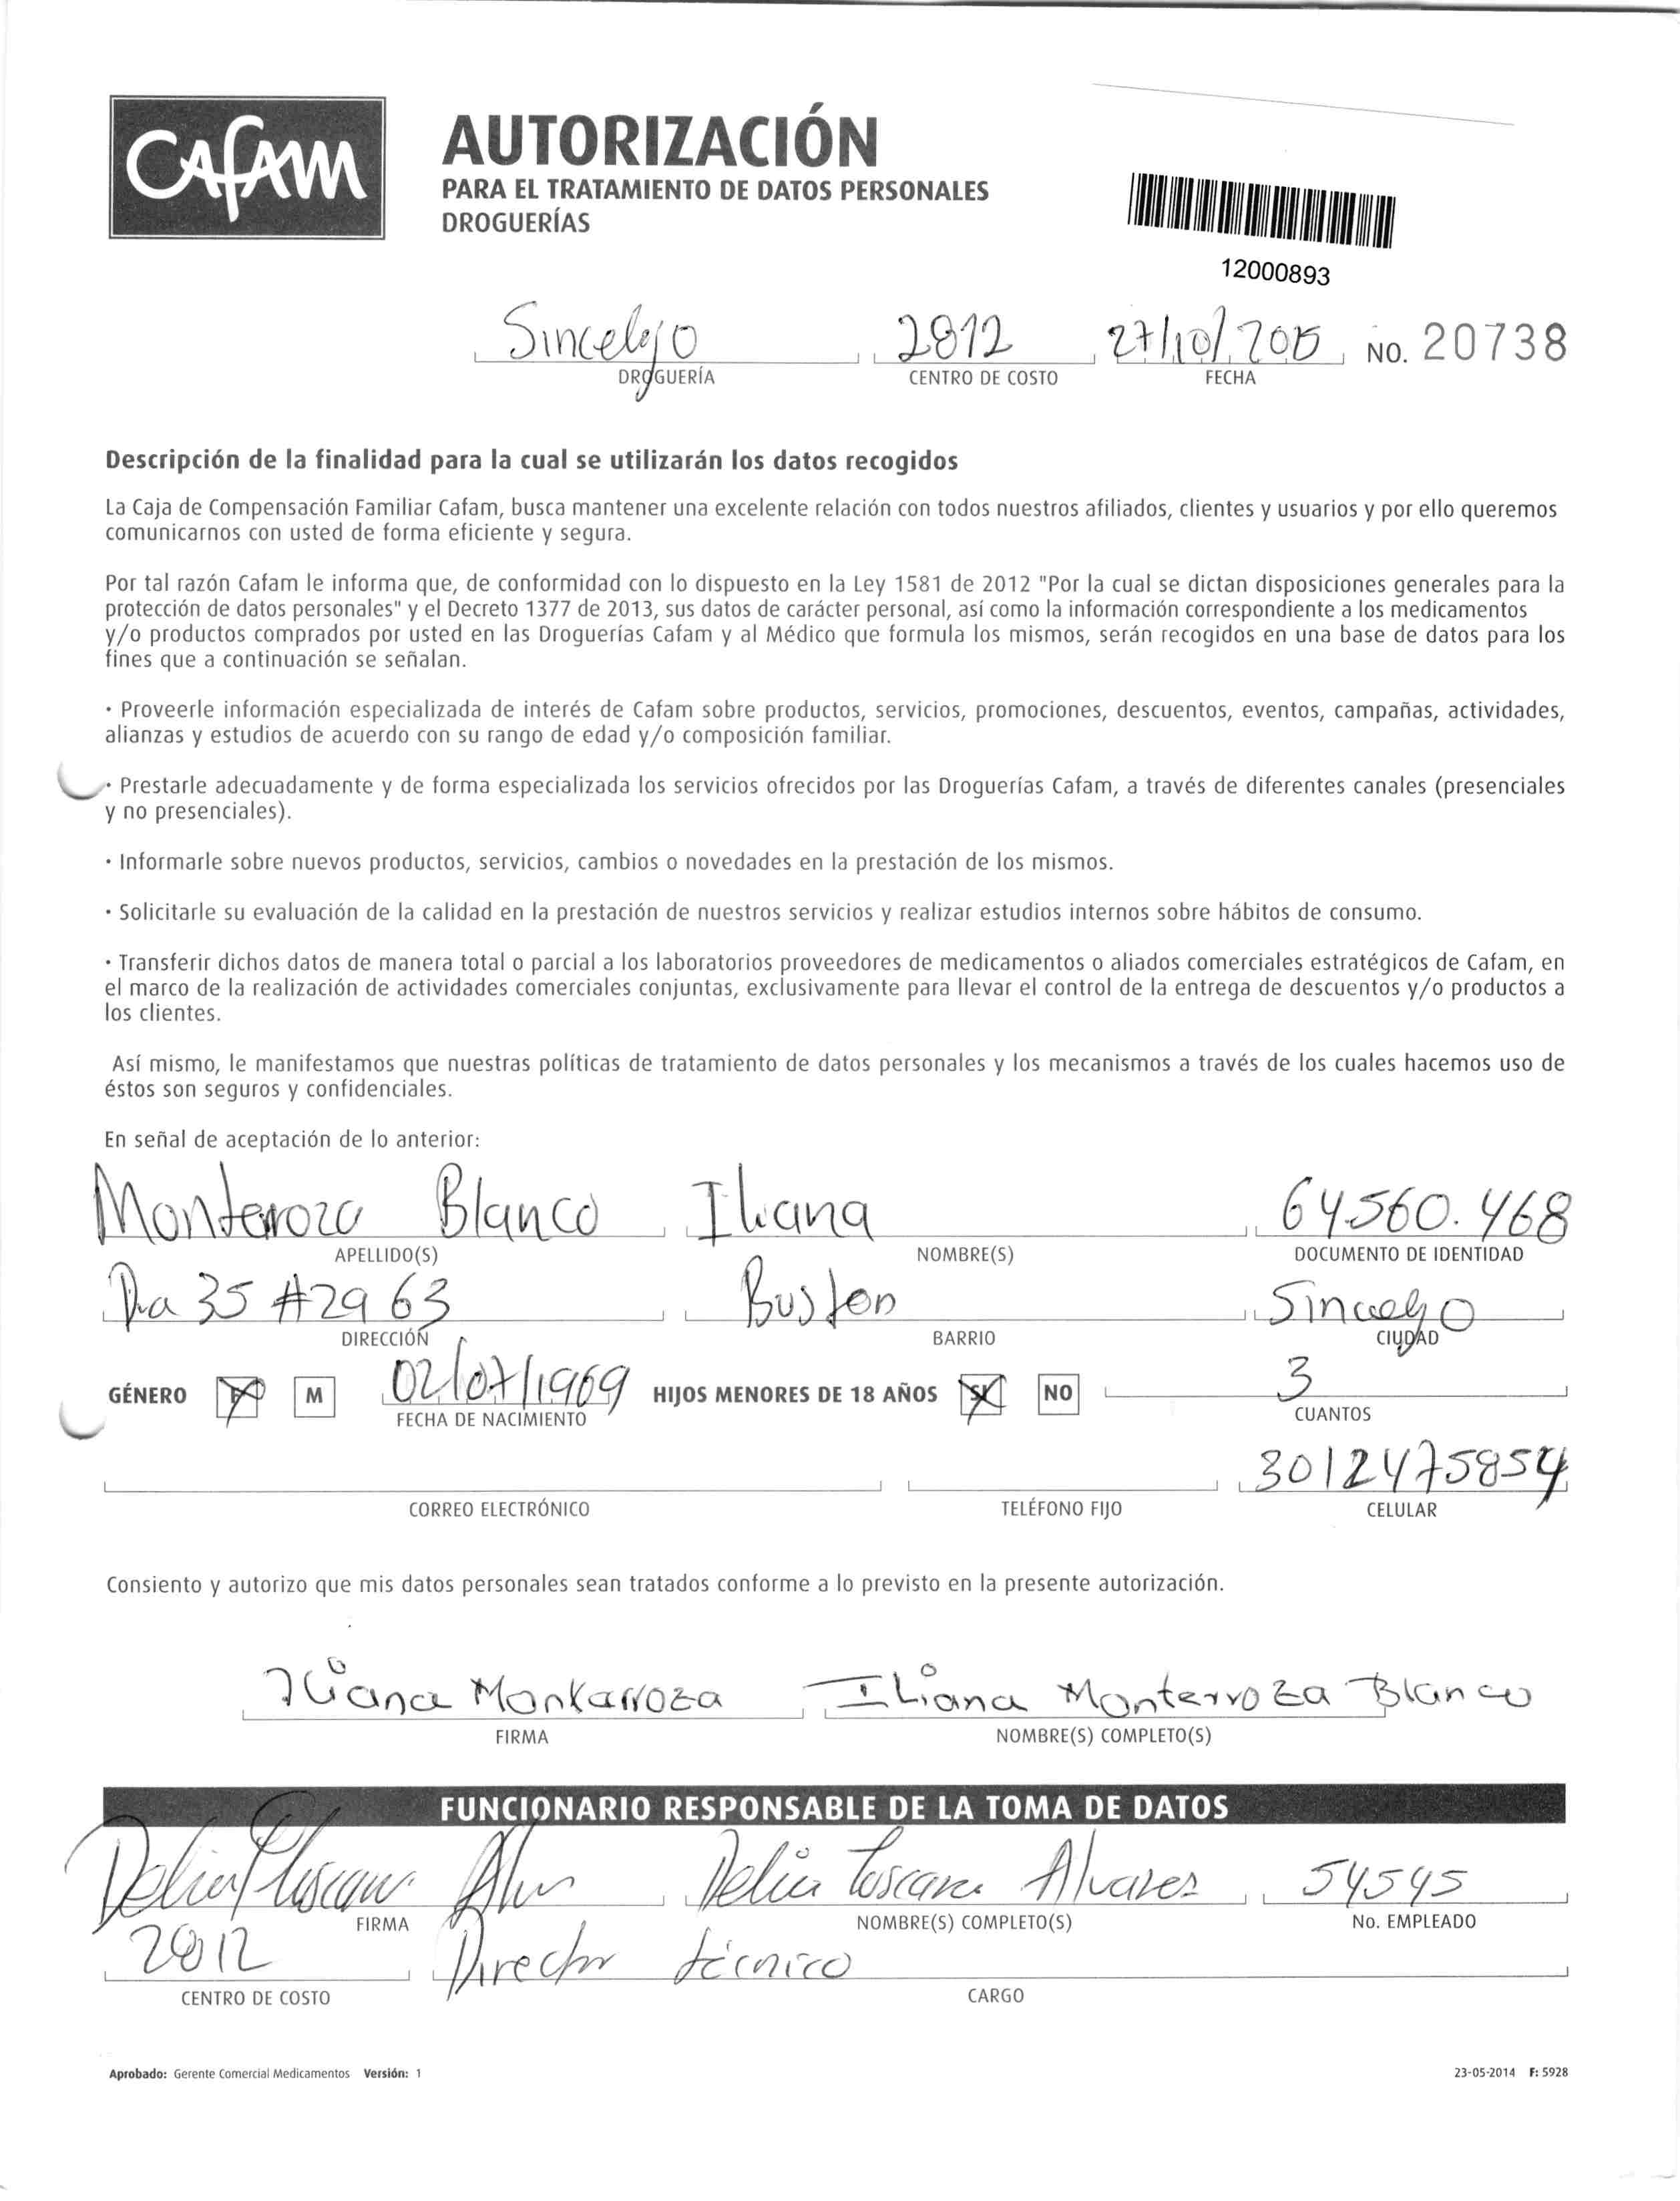 Cafam
AUTORIZACIÓN
PARA EL TRATAMIENTO DE DATOS PERSONALES
DROGUERÍAS
12000893
Sincelejo 2812 27/10/2015 No. 20738
DROGUERÍA CENTRO DE COSTO FECHA
Descripción de la finalidad para la cual se utilizarán los datos recogidos
La Caja de Compensación Familiar Cafam, busca mantener una excelente relación con todos nuestros afiliados, clientes y usuarios y por ello queremos
comunicarnos con usted de forma eficiente y segura.
Por tal razón Cafam le informa que, de conformidad con lo dispuesto en la Ley 1581 de 2012 "Por la cual se dictan disposiciones generales para la
protección de datos personales" y el Decreto 1377 de 2013, sus datos de carácter personal, así como la información correspondiente a los medicamentos
y/o productos comprados por usted en las Droguerías Cafam y al Médico que formula los mismos, serán recogidos en una base de datos para los
fines que a continuación se señalan.
· Proveerle información especializada de interés de Cafam sobre productos, servicios, promociones, descuentos, eventos, campañas, actividades,
alianzas y estudios de acuerdo con su rango de edad y/o composición familiar.
· Prestarle adecuadamente y de forma especializada los servicios ofrecidos por las Droguerías Cafam, a través de diferentes canales (presenciales
y no presenciales).
· Informarle sobre nuevos productos, servicios, cambios o novedades en la prestación de los mismos.
· Solicitarle su evaluación de la calidad en la prestación de nuestros servicios y realizar estudios internos sobre hábitos de consumo.
· Transferir dichos datos de manera total o parcial a los laboratorios proveedores de medicamentos o aliados comerciales estratégicos de Cafam, en
el marco de la realización de actividades comerciales conjuntas, exclusivamente para llevar el control de la entrega de descuentos y/o productos a
los clientes.
Así mismo, le manifestamos que nuestras políticas de tratamiento de datos personales y los mecanismos a través de los cuales hacemos uso de
éstos son seguros y confidenciales.
En señal de aceptación de lo anterior:
Monterroza Blanco Iliana 64.560.468
APELLIDO(S) NOMBRE(S) DOCUMENTO DE IDENTIDAD
35 #29 63 Boston Sincelejo
DIRECCIÓN BARRIO CIUDAD
GÉNERO F M 02/07/1969 HIJOS MENORES DE 18 AÑOS SI NO 3
FECHA DE NACIMIENTO CUANTOS
3012475854
CORREO ELECTRÓNICO TELÉFONO FIJO CELULAR
Consiento y autorizo que mis datos personales sean tratados conforme a lo previsto en la presente autorización.
Iliana Monterroza Iliana Monterroza Blanco
FIRMA NOMBRE(S) COMPLETO(S)
FUNCIONARIO RESPONSABLE DE LA TOMA DE DATOS
Delia Toscana Alvarez 54545
FIRMA NOMBRE(S) COMPLETO(S) No. EMPLEADO
2812 Director técnico
CENTRO DE COSTO CARGO
Aprobado: Gerente Comercial Medicamentos Versión: 1 23-05-2014 F: 5928